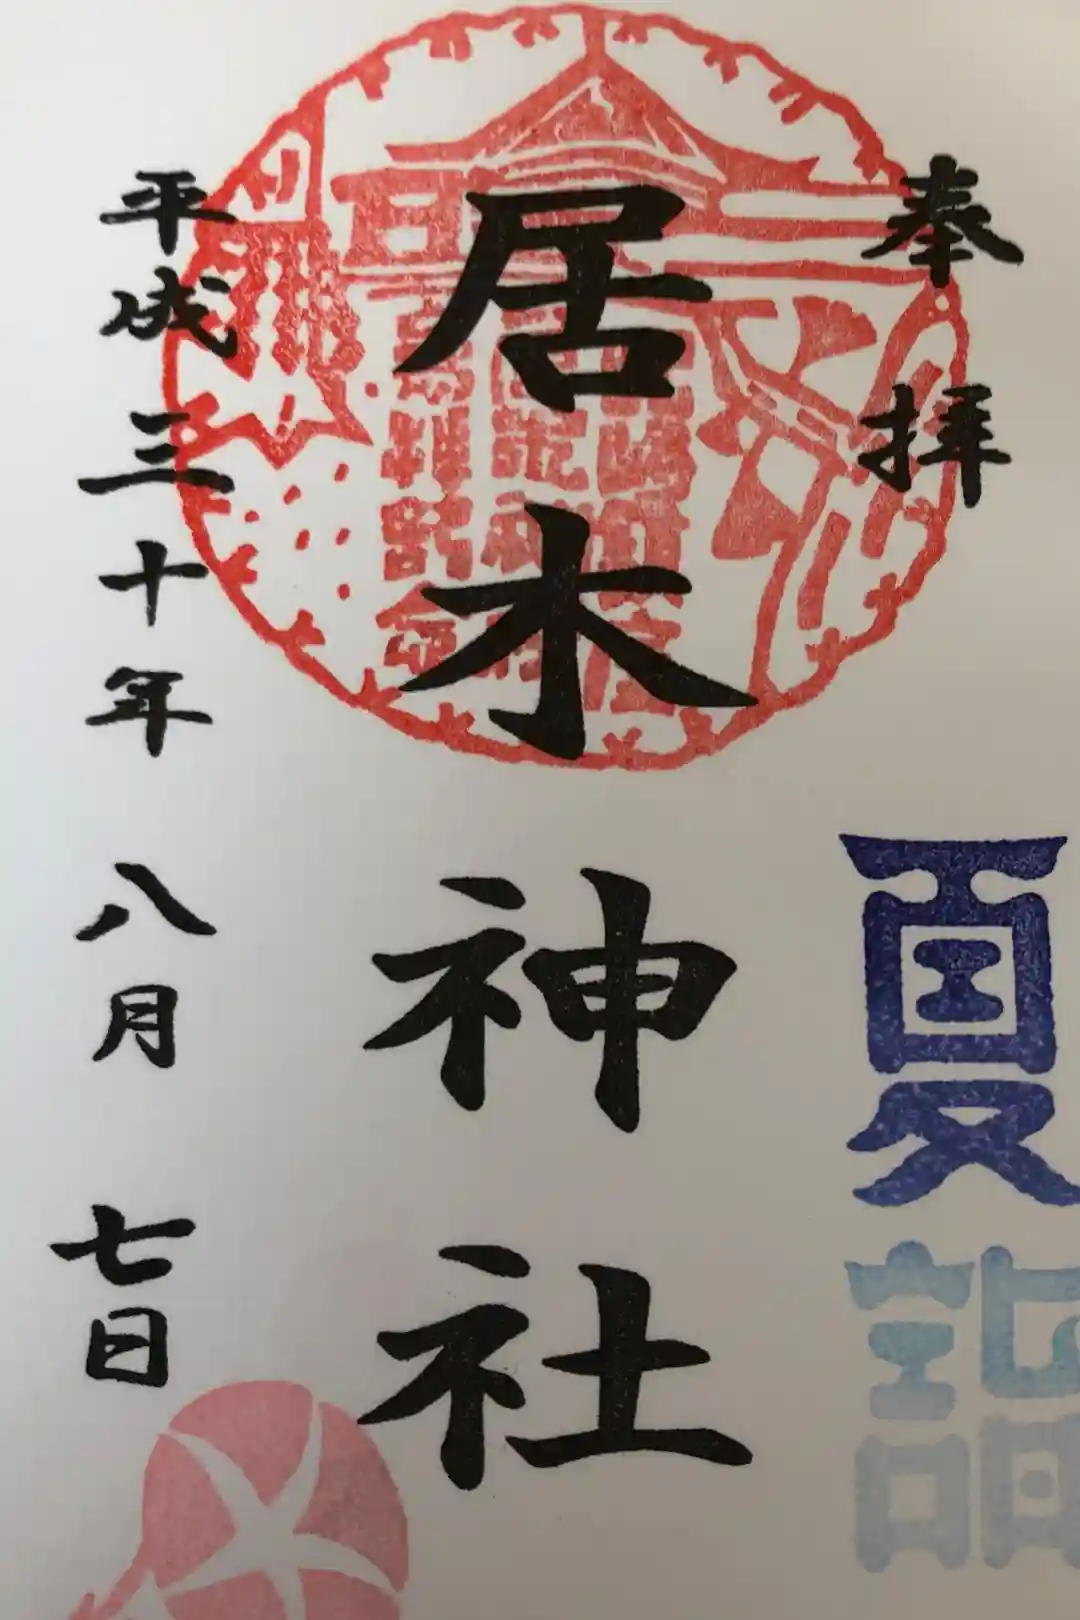 奉拝
夏詣
居木神社
平成三十年八月七日